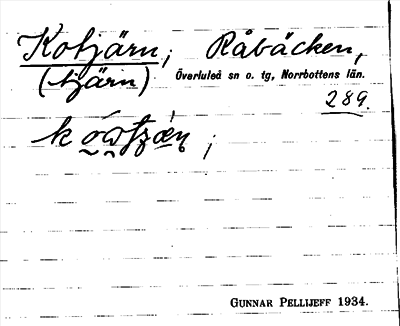 Kotjärn; Råbäcken,
(tjärn) Överluleå sn o. tg, Norrbottens län.
289.
GUNNAR PELLIJEFF 1934.